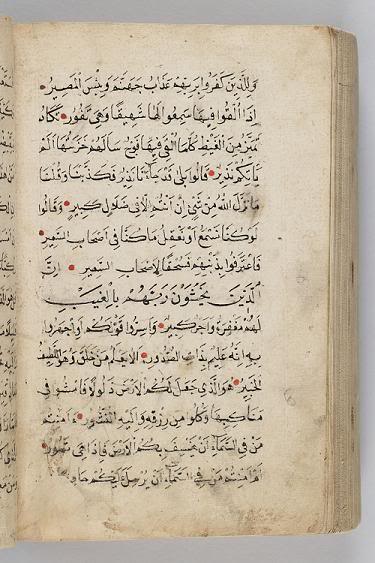 وَلِلَّذِينَ كَفَرُوا بِرَبِّهِمْ عَذَابُ جَهَنَّمَ وَبِئْسَ الْمَصِيرُ
إِذَا أُلْقُوا فِيهَا سَمِعُوا لَهَا شَهِيقًا وَهِيَ تَفُورُ تَكَادُ
تَمَيَّزُ مِنَ الْغَيْظِ كُلَّمَا أُلْقِيَ فِيهَا فَوْجٌ سَأَلَهُمْ خَزَنَتُهَا أَلَمْ
يَأْتِكُمْ نَذِيرٌ قَالُوا بَلَىٰ قَدْ جَاءَنَا نَذِيرٌ فَكَذَّبْنَا وَقُلْنَا
مَا نَزَّلَ اللَّهُ مِنْ شَيْءٍ إِنْ أَنْتُمْ إِلَّا فِي ضَلَالٍ كَبِيرٍ وَقَالُوا
لَوْ كُنَّا نَسْمَعُ أَوْ نَعْقِلُ مَا كُنَّا فِي أَصْحَابِ السَّعِيرِ
فَاعْتَرَفُوا بِذَنْبِهِمْ فَسُحْقًا لِأَصْحَابِ السَّعِيرِ إِنَّ
الَّذِينَ يَخْشَوْنَ رَبَّهُمْ بِالْغَيْبِ
لَهُمْ مَغْفِرَةٌ وَأَجْرٌ كَبِيرٌ وَأَسِرُّوا قَوْلَكُمْ أَوِ اجْهَرُوا
بِهِ إِنَّهُ عَلِيمٌ بِذَاتِ الصُّدُورِ أَلَا يَعْلَمُ مَنْ خَلَقَ وَهُوَ اللَّطِيفُ
الْخَبِيرُ هُوَ الَّذِي جَعَلَ لَكُمُ الْأَرْضَ ذَلُولًا فَامْشُوا فِي
مَنَاكِبِهَا وَكُلُوا مِنْ رِزْقِهِ وَإِلَيْهِ النُّشُورُ ءَأَمِنْتُمْ
مَنْ فِي السَّمَاءِ أَنْ يَخْسِفَ بِكُمُ الْأَرْضَ فَإِذَا هِيَ تَمُورُ
أَمْ أَمِنْتُمْ مَنْ فِي السَّمَاءِ أَنْ يُرْسِلَ عَلَيْكُمْ حَاصِبًا